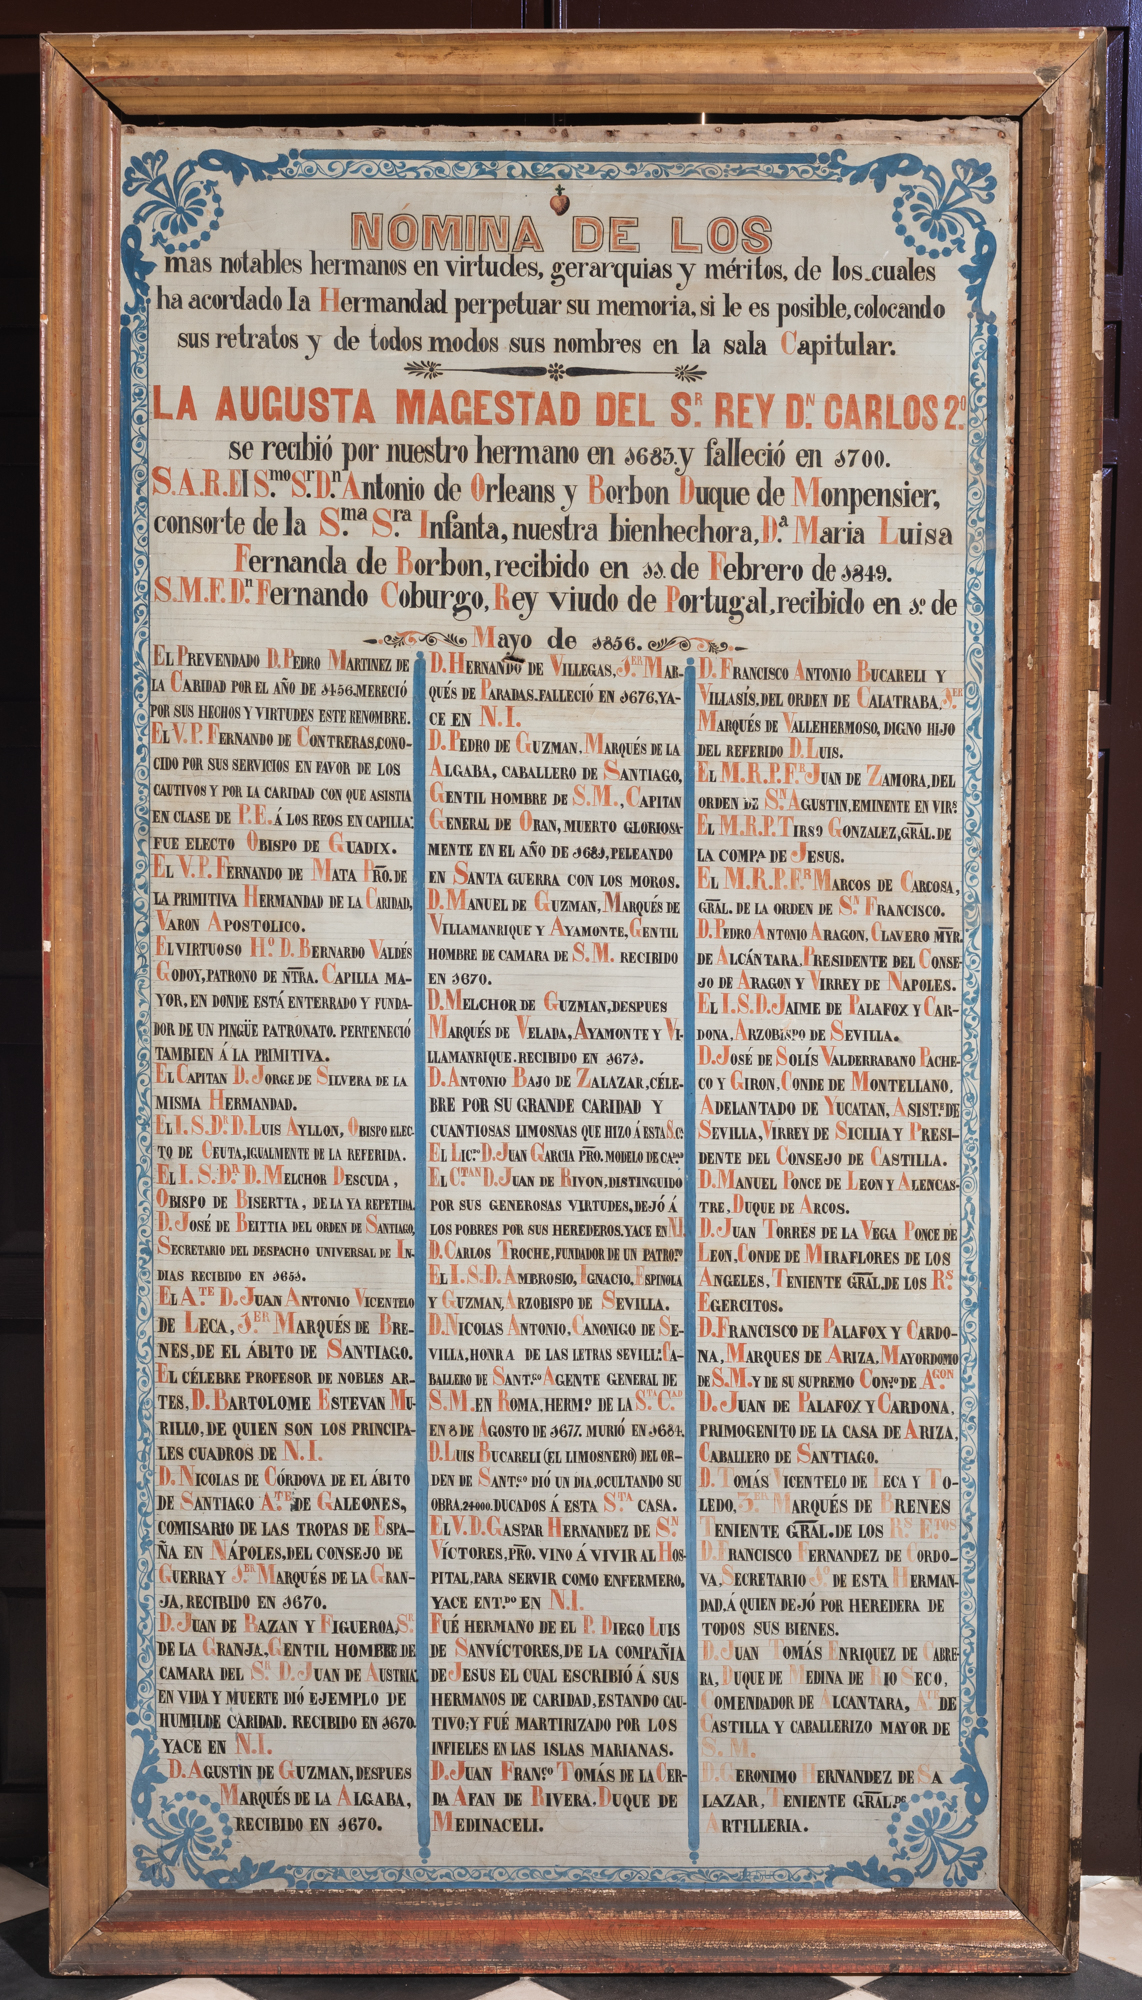 NÓMINA DE LOS
mas notables hermanos en virtudes, gerarquias y méritos, de los cuales
ha acordado la Hermandad perpetuar su memoria, si le es posible, colocando
sus retratos y de todos modos sus nombres en la sala Capitular.
LA AUGUSTA MAGESTAD DEL S.R REY D.N CARLOS 2.º
se recibió por nuestro hermano en 1683.y falleció en 1700.
S.A.R.El S.mo S.r D.n Antonio de Orleans y Borbon Duque de Monpensier,
consorte de la S.ma S.ra Infanta, nuestra bienhechora, D.a Maria Luisa
Fernanda de Borbon, recibido en 11. de Febrero de 1849.
S.M.F. D.n Fernando Coburgo, Rey viudo de Portugal, recibido en 1.º de
Mayo de 1856.
EL PREVENDADO D. PEDRO MARTINEZ DE
LA CARIDAD POR EL AÑO DE 1456. MERECIÓ
POR SUS HECHOS Y VIRTUDES ESTE RENOMBRE.
EL V.P. FERNANDO DE CONTRERAS, CONO-
CIDO POR SUS SERVICIOS EN FAVOR DE LOS
CAUTIVOS Y POR LA CARIDAD CON QUE ASISTIA
EN CLASE DE P.E. Á LOS REOS EN CAPILLA:
FUE ELECTO OBISPO DE GUADIX.
EL V.P. FERNANDO DE MATA PRO. DE
LA PRIMITIVA HERMANDAD DE LA CARIDAD,
VARON APOSTOLICO.
EL VIRTUOSO H.º D. BERNARDO VALDÉS
GODOY, PATRONO DE NTRA. CAPILLA MA-
YOR, EN DONDE ESTÁ ENTERRADO Y FUNDA-
DOR DE UN PINGÜE PATRONATO. PERTENECIÓ
TAMBIEN Á LA PRIMITIVA.
EL CAPITAN D. JORGE DE SILVERA DE LA
MISMA HERMANDAD.
EL I.S.D.R D. LUIS AYLLON, OBISPO ELEC-
TO DE CEUTA, IGUALMENTE DE LA REFERIDA.
EL I.S.D.R D. MELCHOR DESCUDA,
OBISPO DE BISERTTA, DE LA YA REPETIDA.
D. JOSÉ DE BEITTIA DEL ORDEN DE SANTIAGO,
SECRETARIO DEL DESPACHO UNIVERSAL DE IN-
DIAS RECIBIDO EN 1651.
EL A.TE D. JUAN ANTONIO VICENTELO
DE LECA, 1.ER MARQUÉS DE BRE-
NES, DE EL ÁBITO DE SANTIAGO.
EL CÉLEBRE PROFESOR DE NOBLES AR-
TES, D. BARTOLOME ESTEVAN MU-
RILLO, DE QUIEN SON LOS PRINCIPA-
LES CUADROS DE N.I.
D. NICOLAS DE CÓRDOVA DE EL ÁBITO
DE SANTIAGO A.TE DE GALEONES,
COMISARIO DE LAS TROPAS DE ESPA-
ÑA EN NÁPOLES, DEL CONSEJO DE
GUERRA Y 1.ER MARQUÉS DE LA GRAN-
JA, RECIBIDO EN 1670.
D. JUAN DE BAZAN Y FIGUEROA, S.R
DE LA GRANJA, GENTIL HOMBRE DE
CAMARA DEL S.R D. JUAN DE AUSTRIA.
EN VIDA Y MUERTE DIÓ EJEMPLO DE
HUMILDE CARIDAD. RECIBIDO EN 1670.
YACE EN N.I.
D. AGUSTIN DE GUZMAN, DESPUES
MARQUÉS DE LA ALGABA,
RECIBIDO EN 1670.
D. HERNANDO DE VILLEGAS, 1.ER MAR-
QUÉS DE PARADAS. FALLECIÓ EN 1676, YA-
CE EN N.I.
D. PEDRO DE GUZMAN, MARQUÉS DE LA
ALGABA, CABALLERO DE SANTIAGO,
GENTIL HOMBRE DE S.M., CAPITAN
GENERAL DE ORAN, MUERTO GLORIOSA-
MENTE EN EL AÑO DE 1681, PELEANDO
EN SANTA GUERRA CON LOS MOROS.
D. MANUEL DE GUZMAN, MARQUÉS DE
VILLAMANRIQUE Y AYAMONTE, GENTIL
HOMBRE DE CAMARA DE S.M. RECIBIDO
EN 1670.
D. MELCHOR DE GUZMAN, DESPUES
MARQUÉS DE VELADA, AYAMONTE Y VI-
LLAMANRIQUE. RECIBIDO EN 1671.
D. ANTONIO BAJO DE ZALAZAR, CÉLE-
BRE POR SU GRANDE CARIDAD Y
CUANTIOSAS LIMOSNAS QUE HIZO Á ESTA S.Cª
EL LIC.DO D. JUAN GARCIA PRO. MODELO DE CA.DAD
EL C.TAN D. JUAN DE RIVON, DISTINGUIDO
POR SUS GENEROSAS VIRTUDES, DEJÓ Á
LOS POBRES POR SUS HEREDEROS. YACE EN N.I.
D. CARLOS TROCHE, FUNDADOR DE UN PATRO.TO
EL I.S.D. AMBROSIO, IGNACIO, ESPINOLA
Y GUZMAN, ARZOBISPO DE SEVILLA.
D. NICOLAS ANTONIO, CANONIGO DE SE-
VILLA, HONRA DE LAS LETRAS SEVILL.S CA-
BALLERO DE SANT.GO AGENTE GENERAL DE
S.M. EN ROMA, HERM.º DE LA S.TA C.AD
EN 8 DE AGOSTO DE 1677. MURIÓ EN 1684.
D. LUIS BUCARELI (EL LIMOSNERO) DEL OR-
DEN DE SANT.GO DIÓ UN DIA, OCULTANDO SU
OBRA, 24000. DUCADOS Á ESTA S.TA CASA.
EL V.D. GASPAR HERNANDEZ DE S.N
VÍCTORES, PRO. VINO Á VIVIR AL HOS-
PITAL, PARA SERVIR COMO ENFERMERO,
YACE ENT.DO EN N.I.
FUÉ HERMANO DE EL P. DIEGO LUIS
DE SANVÍCTORES, DE LA COMPAÑIA
DE JESUS EL CUAL ESCRIBIÓ Á SUS
HERMANOS DE CARIDAD, ESTANDO CAU-
TIVO; Y FUÉ MARTIRIZADO POR LOS
INFIELES EN LAS ISLAS MARIANAS.
D. JUAN FRAN.CO TOMÁS DE LA CER-
DA AFAN DE RIVERA. DUQUE DE
MEDINACELI.
D. FRANCISCO ANTONIO BUCARELI Y
VILLASÍS, DEL ORDEN DE CALATRABA, 1.ER
MARQUÉS DE VALLEHERMOSO, DIGNO HIJO
DEL REFERIDO D. LUIS.
EL M.R.P.F.R JUAN DE ZAMORA, DEL
ORDEN DE S.N AGUSTIN, EMINENTE EN VIR.S
EL M.R.P. TIRSO GONZALEZ, GRAL. DE
LA COMP.A DE JESUS.
EL M.R.P.F.R MARCOS DE CARCOSA,
GRAL. DE LA ORDEN DE S.N FRANCISCO.
D. PEDRO ANTONIO ARAGON, CLAVERO MYR.
DE ALCÁNTARA, PRESIDENTE DEL CONSE-
JO DE ARAGON Y VIRREY DE NAPOLES.
EL I.S.D. JAIME DE PALAFOX Y CAR-
DONA, ARZOBISPO DE SEVILLA.
D. JOSÉ DE SOLÍS VALDERRABANO PACHE-
CO Y GIRON, CONDE DE MONTELLANO,
ADELANTADO DE YUCATAN, ASIST.E DE
SEVILLA, VIRREY DE SICILIA Y PRESI-
DENTE DEL CONSEJO DE CASTILLA.
D. MANUEL PONCE DE LEON Y ALENCAS-
TRE, DUQUE DE ARCOS.
D. JUAN TORRES DE LA VEGA PONCE DE
LEON, CONDE DE MIRAFLORES DE LOS
ANGELES, TENIENTE GRAL. DE LOS R.S
EGERCITOS.
D. FRANCISCO DE PALAFOX Y CARDO-
NA, MARQUES DE ARIZA, MAYORDOMO
DE S.M. Y DE SU SUPREMO CON.JO DE A.GON
D. JUAN DE PALAFOX Y CARDONA,
PRIMOGENITO DE LA CASA DE ARIZA,
CABALLERO DE SANTIAGO.
D. TOMÁS VICENTELO DE LECA Y TO-
LEDO, 3.ER MARQUÉS DE BRENES
TENIENTE GRAL. DE LOS R.S E.TOS
D. FRANCISCO FERNANDEZ DE CORDO-
VA, SECRETARIO 1.º DE ESTA HERMAN-
DAD, Á QUIEN DEJÓ POR HEREDERA DE
TODOS SUS BIENES.
D. JUAN TOMÁS ENRIQUEZ DE CABRE-
RA, DUQUE DE MEDINA DE RIO SECO,
COMENDADOR DE ALCANTARA, A.TE DE
CASTILLA Y CABALLERIZO MAYOR DE
S.M.
D. GERONIMO HERNANDEZ DE SA
LAZAR, TENIENTE GRAL. DE
ARTILLERIA.